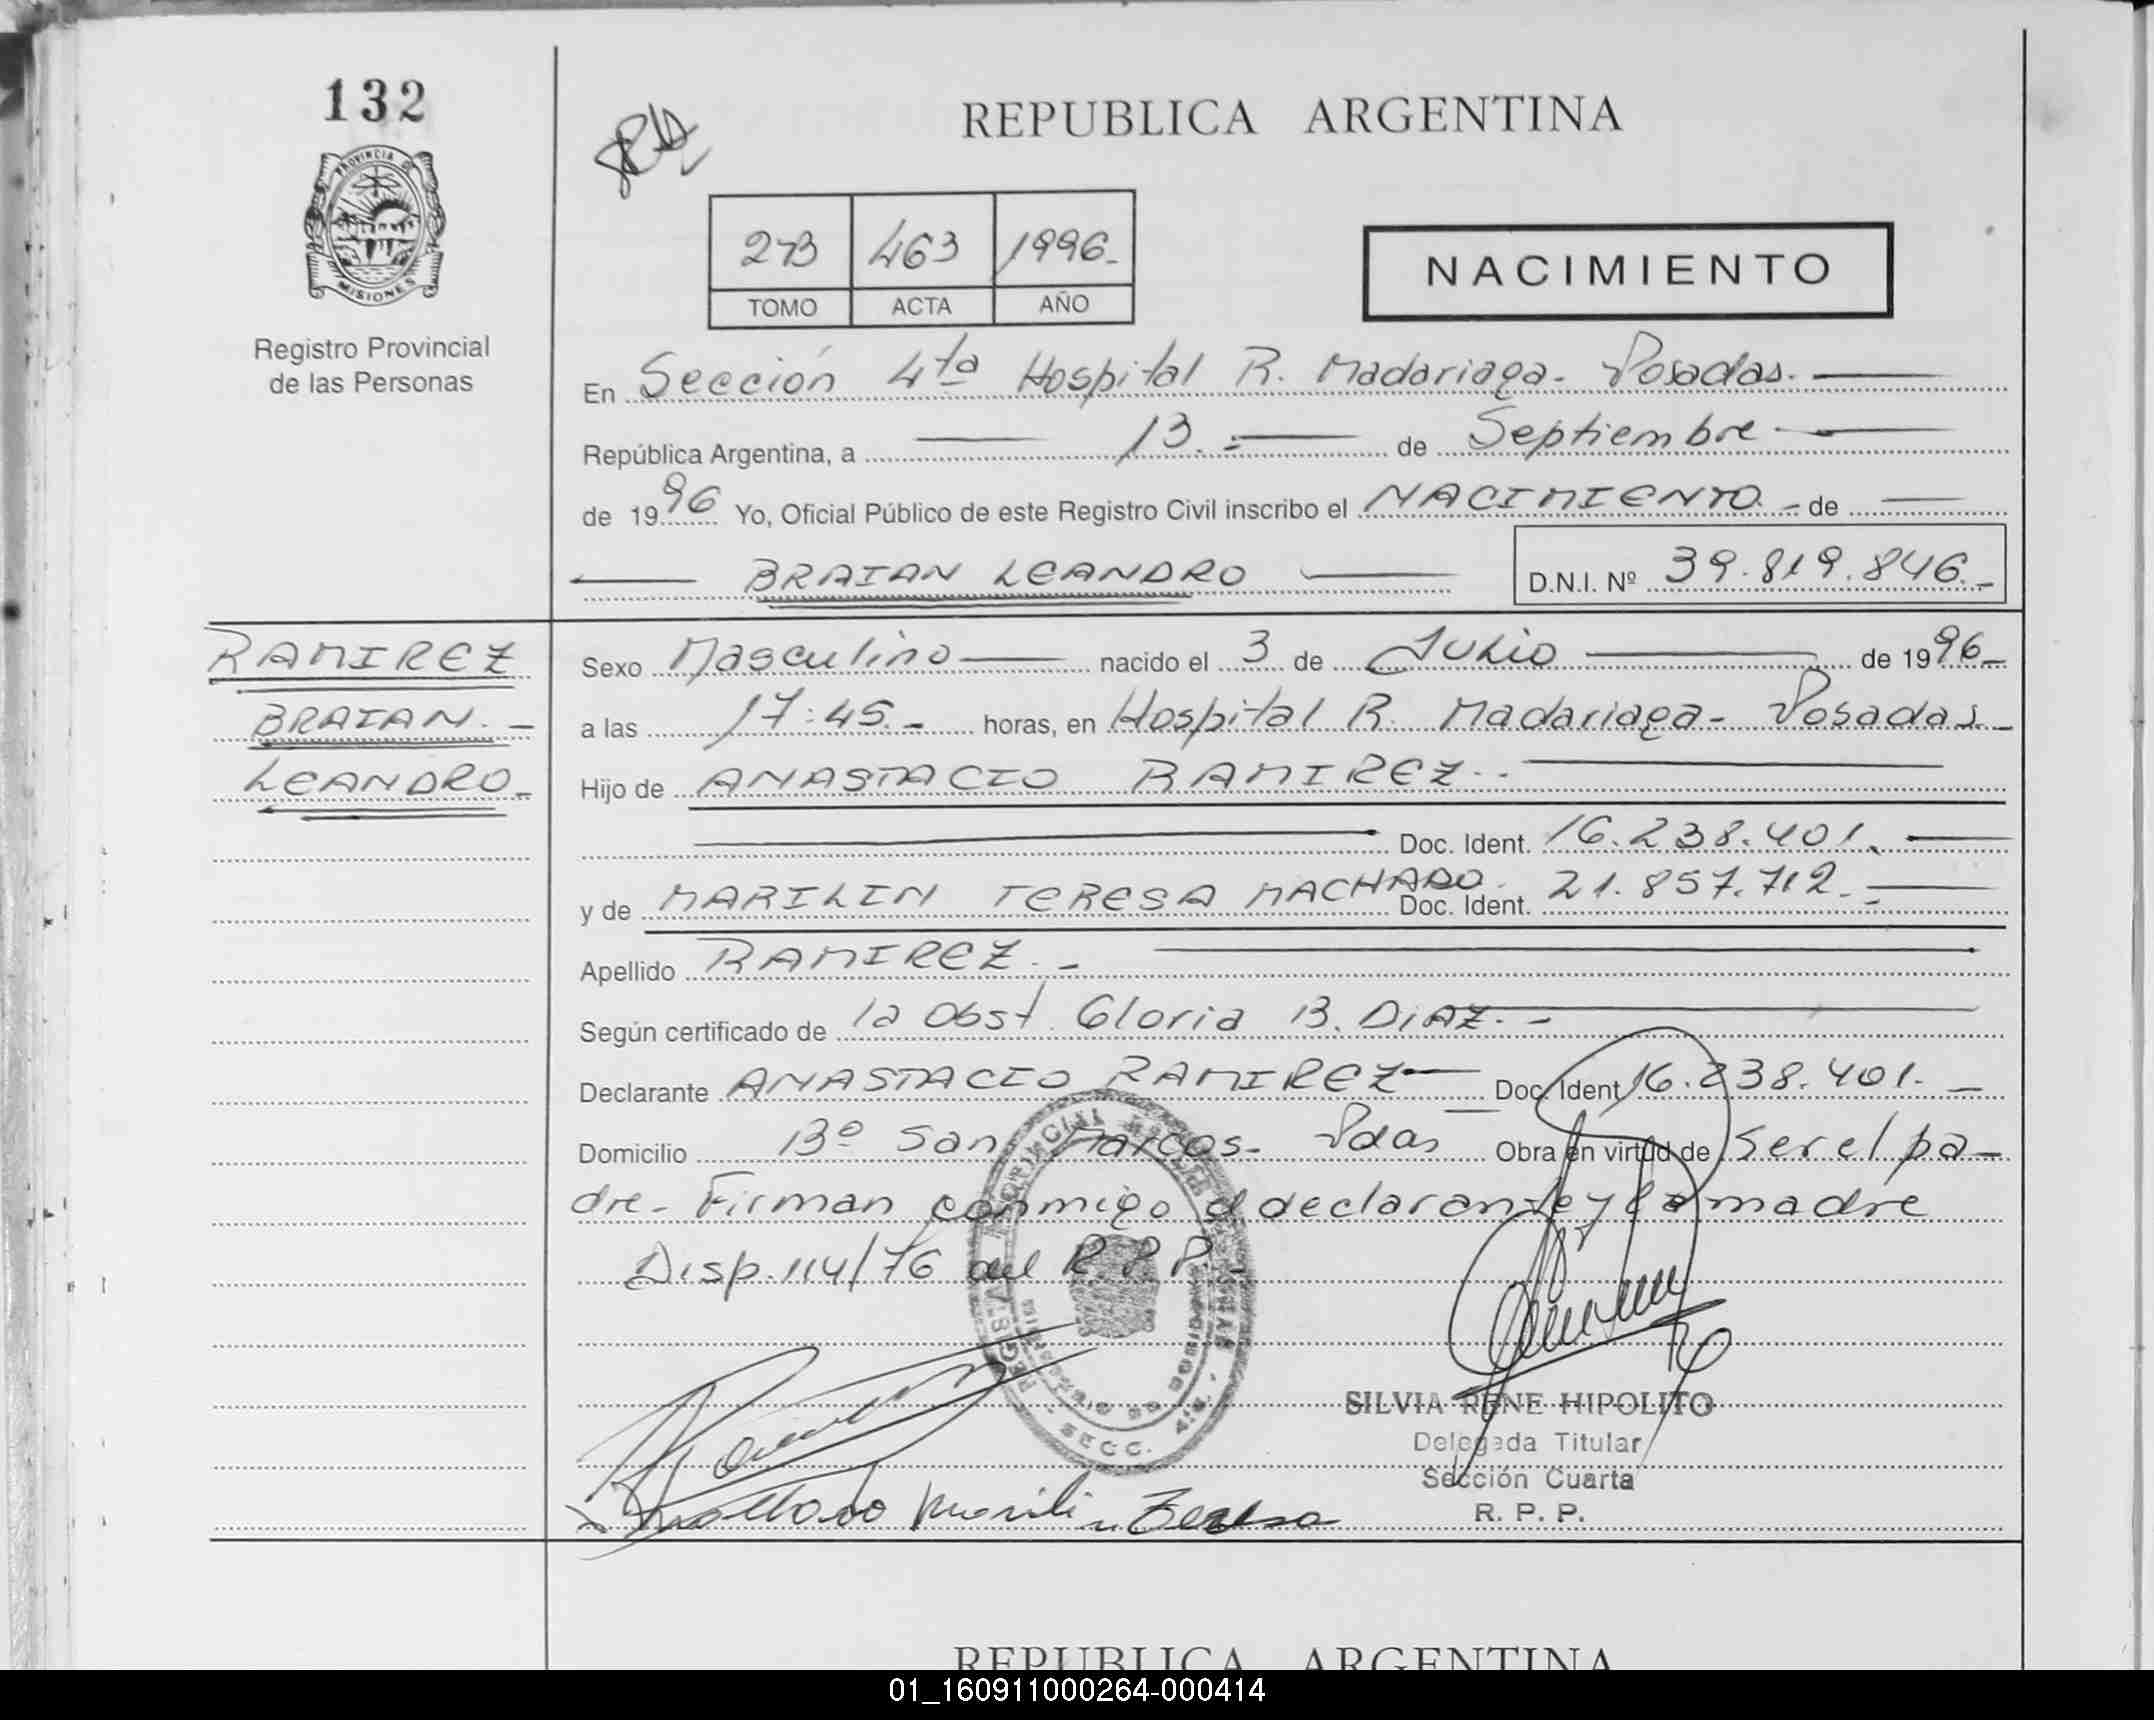 132
REPUBLICA ARGENTINA
PROVINCIA DE
MISIONES
Registro Provincial
de las Personas
463 1996.-
TOMO ACTA AÑO
NACIMIENTO
En Sección 4ta Hospital R. Madariaga- Posadas.
República Argentina, a 13.- de Septiembre
de 1996 Yo, Oficial Público de este Registro Civil inscribo el NACIMIENTO.- de
BRAIAN LEANDRO D.N.I. Nº 39.819.846.-
RAMIREZ
BRAIAN.-
LEANDRO.-
Sexo Masculino nacido el 3 de Julio de 1996.-
a las 17:45.- horas, en Hospital R. Madariaga- Posadas.-
Hijo de ANASTACIO RAMIREZ.-
Doc. Ident. 16.238.401.
y de MARILIN TERESA MACHADO. Doc. Ident. 21.857.712.-
Apellido RAMIREZ.-
Según certificado de la Obst. Gloria B. DIAZ.-
Declarante ANASTACIO RAMIREZ Doc. Ident 16.238.401.-
Domicilio Bº San Marcos- Pdas Obra en virtud de Ser el pa-
dre- Firman conmigo el declarante y la madre
Disp. 114/76 del R.P.P.
SECC. 4ta.
SILVIA RENE HIPOLITO
Delegada Titular
Sección Cuarta
R. P. P.
Marilin Teresa
REPUBLICA ARGENTINA
01_160911000264-000414